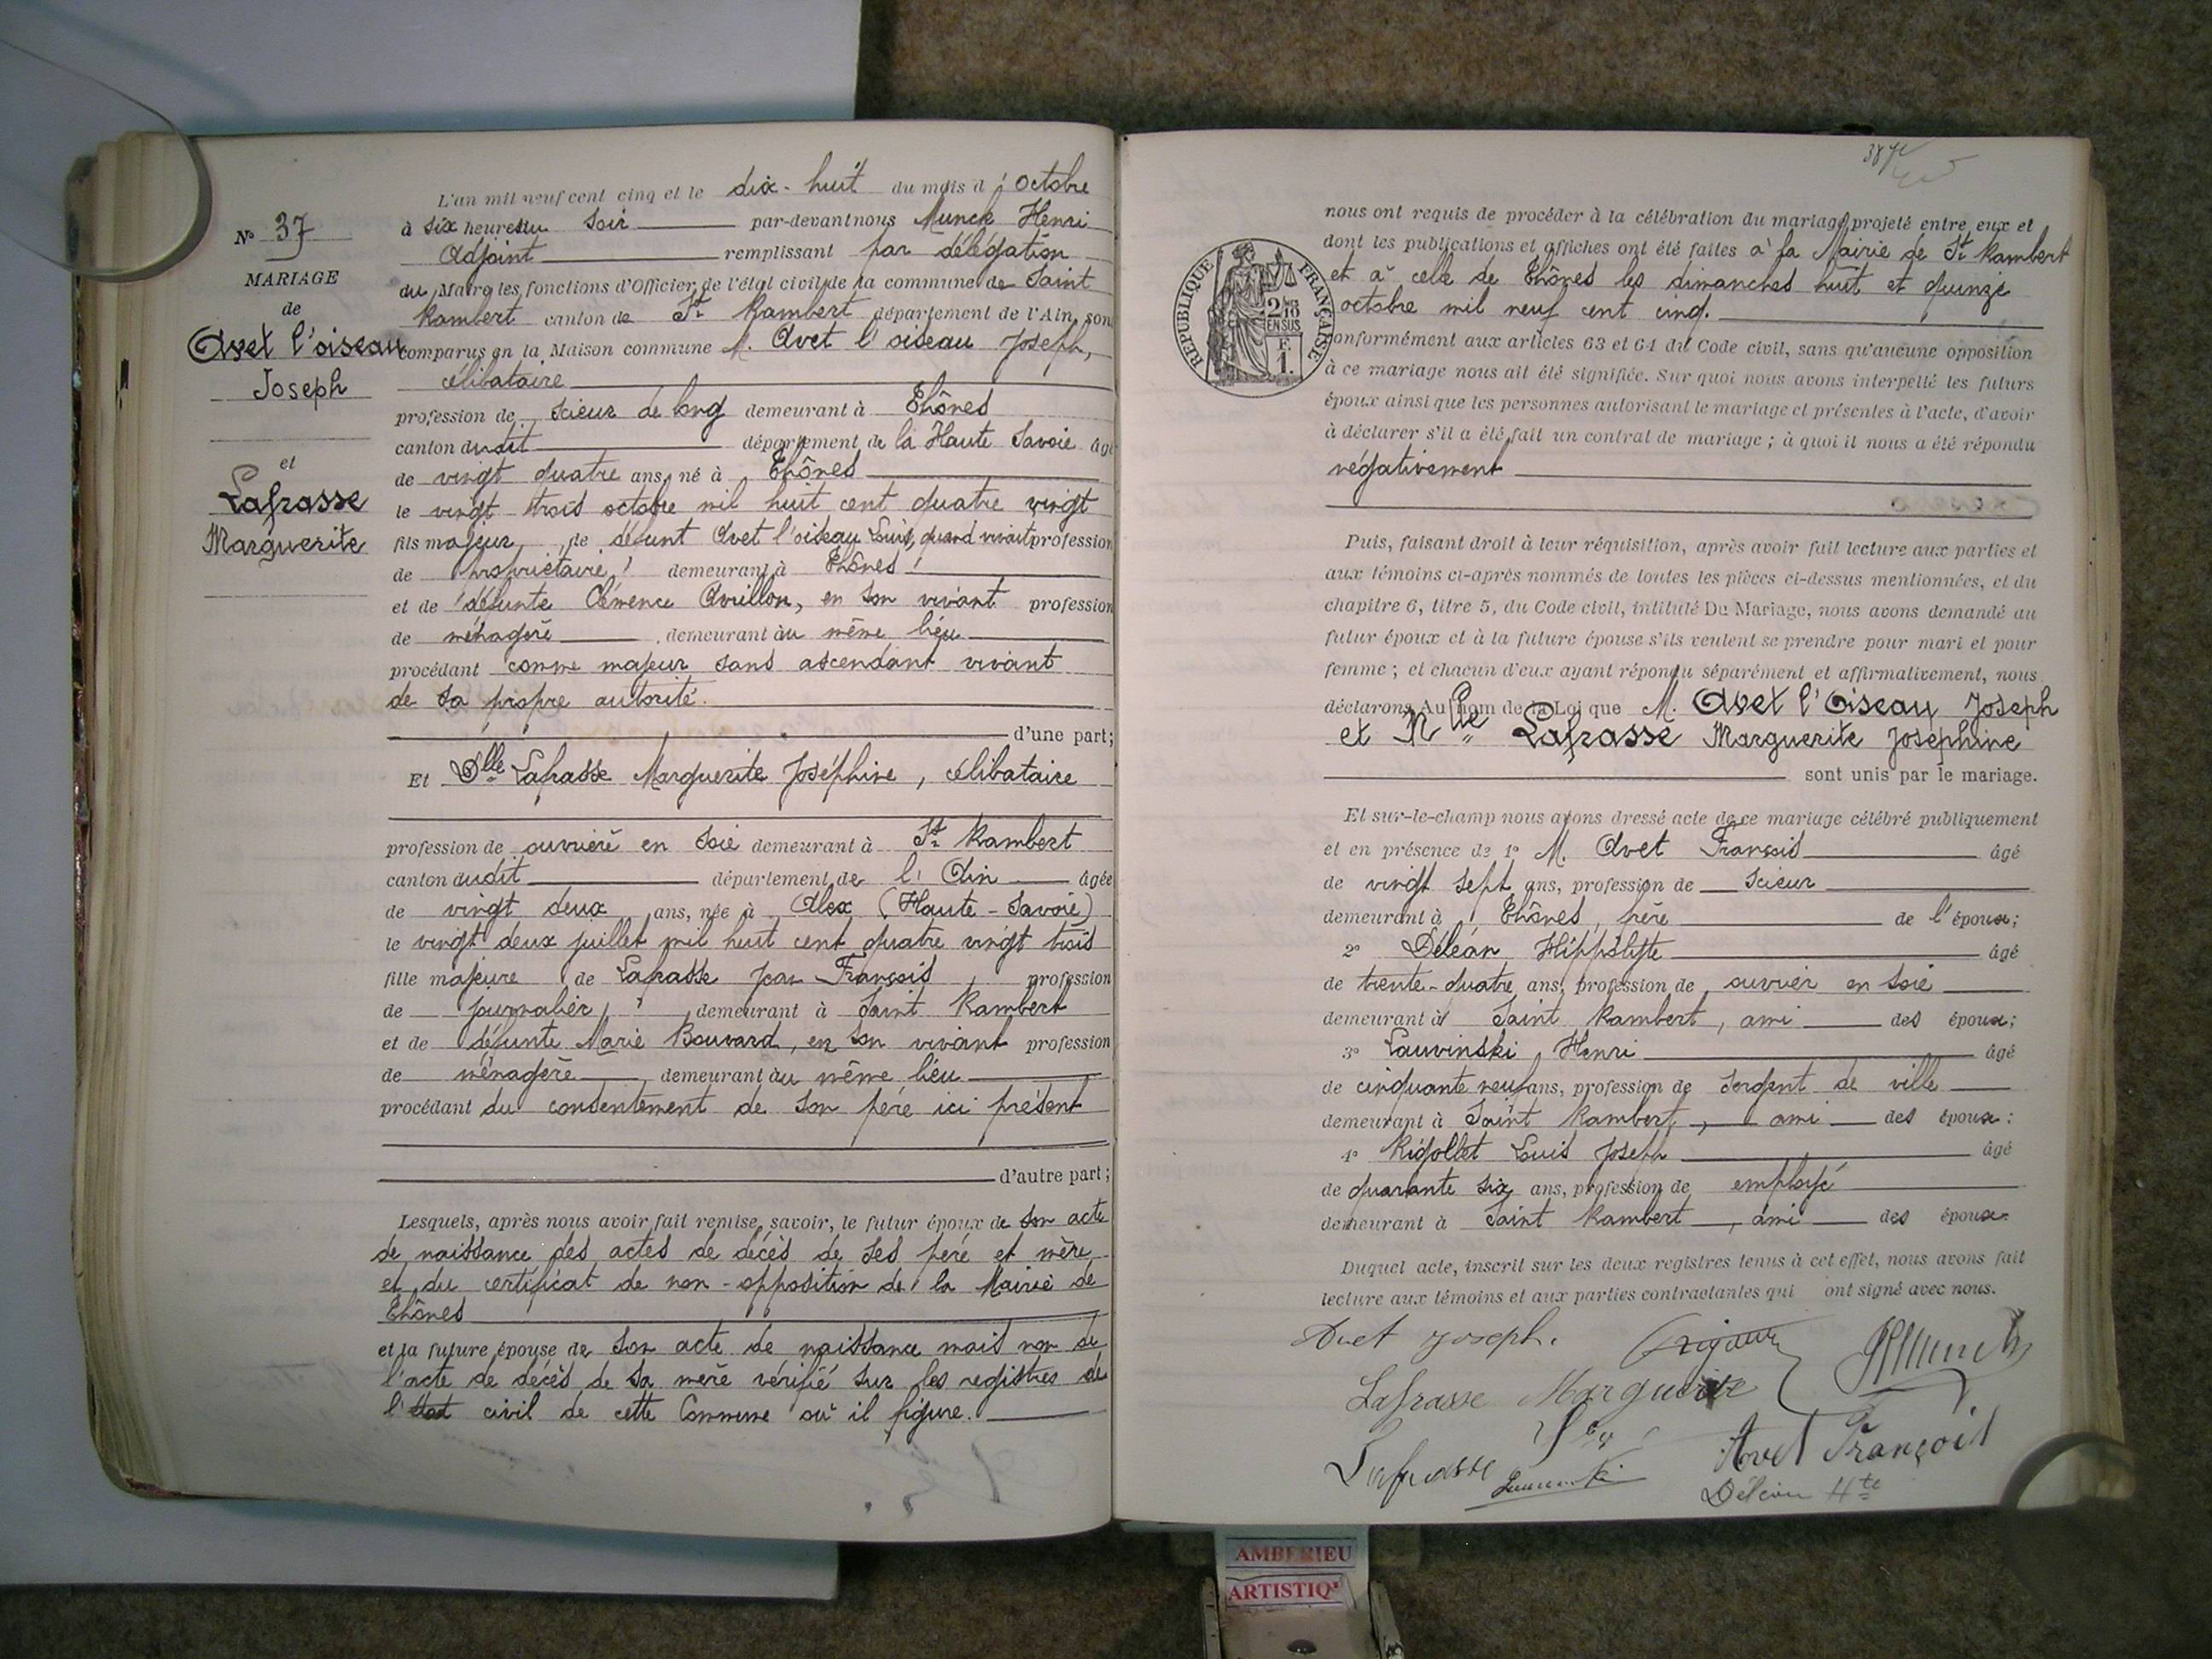 L'an mil neuf cent cinq et le dix-huit du mois d'octobre
N° 37
à six heures du soir par-devant nous Munck Henri
Adjoint remplissant par délégation
MARIAGE
du Maire les fonctions d'Officier de l'état civil de la commune de Saint
de
Rambert canton de St Rambert département de l'Ain, son
Avet l'oiseau
comparus en la Maison commune M. Avet l'oiseau Joseph,
Joseph
célibataire
profession de scieur de long demeurant à Thônes
canton dudit département de la Haute Savoie âgé
et
de vingt quatre ans, né à Thônes
Lafrasse
le vingt trois octobre mil huit cent quatre vingt
Marguerite
fils majeur de défunt Avet l'oiseau Louis, quand vivait profession
de propriétaire demeurant à Thônes
et de défunte Clémence Avrillon, en son vivant profession
de ménagère demeurant au même lieu
procédant comme majeur sans ascendant vivant
de sa propre autorité.
d'une part;
Et Dlle Lafrasse Marguerite Joséphine, célibataire
profession de ouvrière en soie demeurant à St Rambert
canton dudit département de l'Ain âgée
de vingt deux ans, née à Alex (Haute-Savoie)
le vingt deux juillet mil huit cent quatre vingt trois
fille majeure de Lafrasse Jean François profession
de journalier demeurant à Saint Rambert
et de défunte Marie Bouvard, en son vivant profession
de ménagère demeurant au même lieu
procédant du consentement de son père ici présent
d'autre part;
Lesquels, après nous avoir fait remise, savoir, le futur époux de son acte
de naissance des actes de décès de ses père et mère
et du certificat de non-opposition de la Mairie de
Thônes
et la future épouse de son acte de naissance mais non de
l'acte de décès de sa mère vérifié sur les registres de
l'état civil de cette Commune où il figure.
RÉPUBLIQUE FRANÇAISE
2/10 EN SUS
F. 1.
nous ont requis de procéder à la célébration du mariage projeté entre eux et
dont les publications et affiches ont été faites à la Mairie de St Rambert
et à celle de Thônes les dimanches huit et quinze
octobre mil neuf cent cinq.
conformément aux articles 63 et 64 du Code civil, sans qu'aucune opposition
à ce mariage nous ait été signifiée. Sur quoi nous avons interpellé les futurs
époux ainsi que les personnes autorisant le mariage et présentes à l'acte, d'avoir
à déclarer s'il a été fait un contrat de mariage ; à quoi il nous a été répondu
négativement
Puis, faisant droit à leur réquisition, après avoir fait lecture aux parties et
aux témoins ci-après nommés de toutes les pièces ci-dessus mentionnées, et du
chapitre 6, titre 5, du Code civil, intitulé Du Mariage, nous avons demandé au
futur époux et à la future épouse s'ils veulent se prendre pour mari et pour
femme ; et chacun d'eux ayant répondu séparément et affirmativement, nous
déclarons Au nom de la Loi que M. Avet l'Oiseau Joseph
et Mlle Lafrasse Marguerite Joséphine
sont unis par le mariage.
Et sur-le-champ nous avons dressé acte de ce mariage célébré publiquement
et en présence de 1° M. Avet François âgé
de vingt sept ans, profession de scieur
demeurant à Thônes, frère de l'époux;
2° Déléan Hippolyte âgé
de trente-quatre ans, profession de ouvrier en soie
demeurant à Saint Rambert, ami des époux;
3° Lauvinski Henri âgé
de cinquante neuf ans, profession de sergent de ville
demeurant à Saint Rambert, ami des époux:
4° Rigollet Louis Joseph âgé
de quarante six ans, profession de employé
demeurant à Saint Rambert, ami des époux.
Duquel acte, inscrit sur les deux registres tenus à cet effet, nous avons fait
lecture aux témoins et aux parties contractantes qui ont signé avec nous.
Avet Joseph.
Lafrasse Marguerite
Lafrasse
Avet François
Déléan Hte
AMBERIEU
ARTISTIQ'